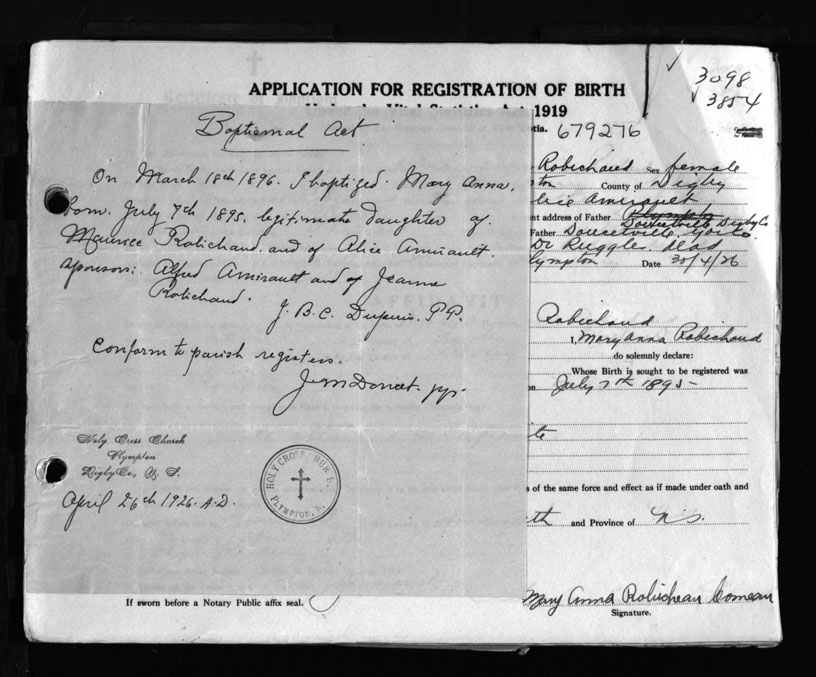 3098
3854
APPLICATION FOR REGISTRATION OF BIRTH
1919
679276
Baptismal Act
On March 18th 1896. I baptized. Mary Anna,
born. July 7th 1895. legitimate daughter of
Maurice Robichaud. and of Alice Amirault.
sponsors: Alfred Amirault and of Jeanne
Robichaud.
J. B. C. Dupuis. P.P.
Conform to parish registers.
J. M. Doucet. pp.
Holy Cross Church
Plympton
Digby Co, N. S.
April 26th 1926. A.D.
HOLY CROSS
PLYMPTON, N.
Robichaud Sex female
County of Digby
Amirault
nt address of Father Plympton
Doucetville Digby Co
Father Doucetville
Dr Ruggle. dead
Plympton Date 30/4/26
Robichaud
I, Mary Anna Robichaud
do solemnly declare:
Whose Birth is sought to be registered was
on July 7th 1895-
of the same force and effect as if made under oath and
and Province of N.S.
If sworn before a Notary Public affix seal.
Mary Anna Robicheau Comeau
Signature.